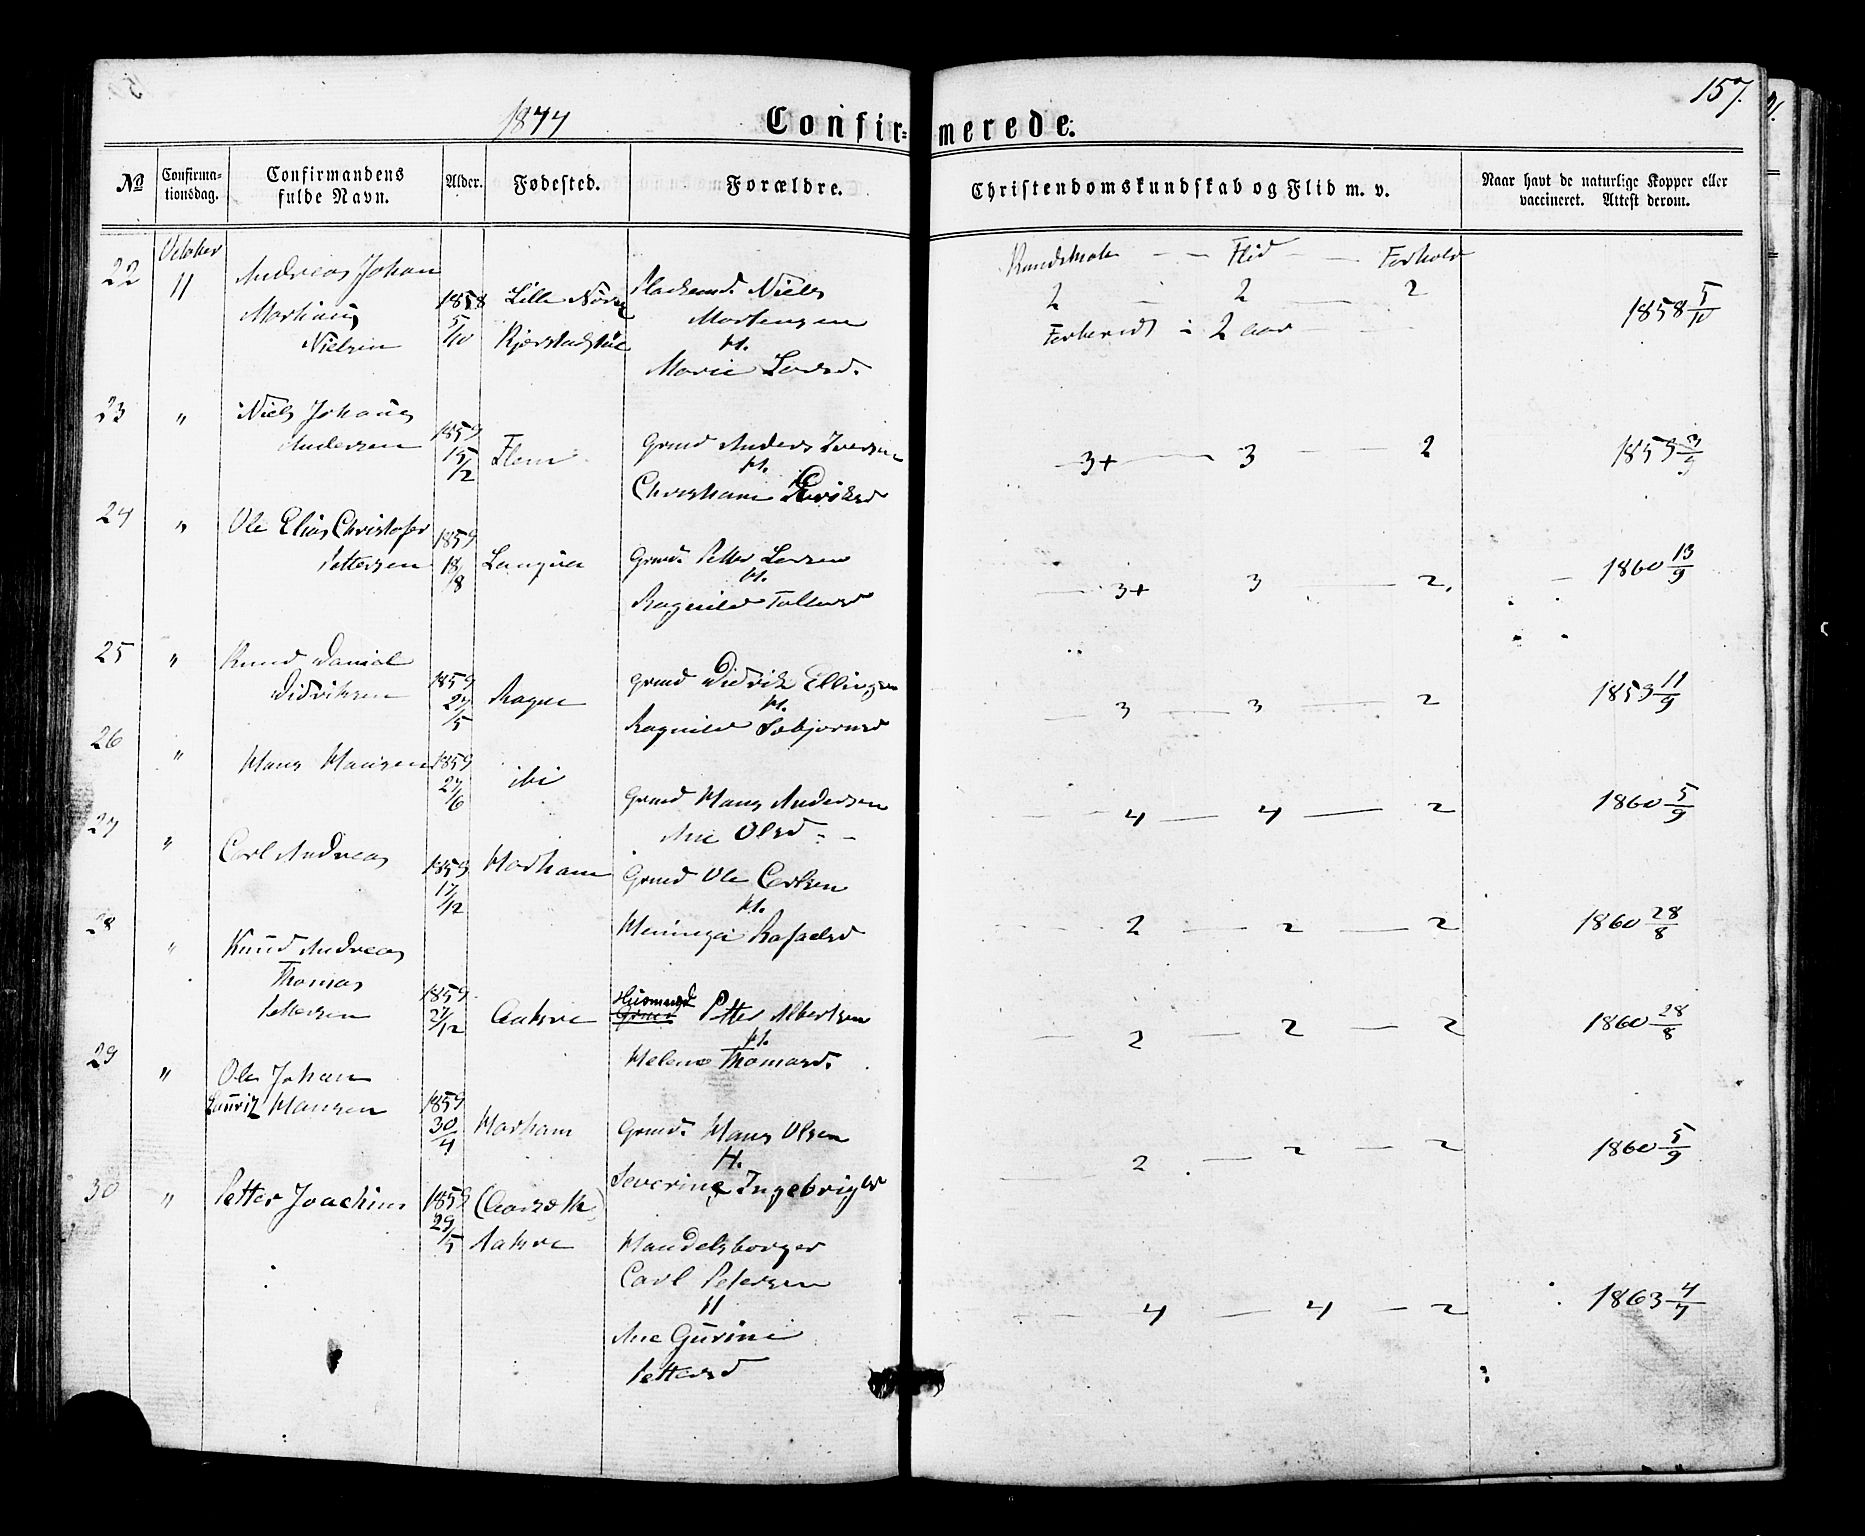 1874
157.
Confir-merede.
No
Confirma-
tionsdag.
Confirmandens
fulde Navn.
Alder.
Fødested.
Forældre.
Christendomskundskab og Flid m. v.
Naar havt de naturlige Kopper eller
vaccineret. Attest derom.
October
Kundskab - - Flid - - Forhold
22 11 Andreas Johan
Martinus
Nielsen
1858
5/10
Lille
Niels
Mortensen
H.
Marie Larsd.
2 - 2 - 2
Forberedt i 2 aar
1858 5/10
23 " Niels Johan
Andersen
1859
15/2
Flem
Grmd Anders Iversen
H.
3+ 3 2
24 " Ole Elias Christofer
Pettersen
1859
18/8
Longva
Grmd. Petter Larsen
H.
Ragnild
3+ 3 2.
1860 13/9
25 " Knud Daniel
Didriksen
1859
27/5
Rogne
Grmd Didrik Ellingsen
H.
Ragnild
3 3 2
11/9
26 " Hans Hansen
1859
27/6
ibi
Grmd Hans Andersen
Ane Olsd.
4 4 2
1860 5/9
27 " Carl Andreas
1859
17/12
Harham
Grmd Ole Carlsen
H.
Rafaelsd
2 2 2
1860 28/8
28 " Knud Andreas
Thomas
Pettersen
1859
27/12
Husmand
Grmd Petter Albertsen
H.
Helene Thomasd.
2 2 2
1860 28/8
29 " Ole Johan
Lauritz Hansen
1859
30/4
Harham
Grmd. Hans Olsen
H.
Severine Ingebrigtsd
2 2 2
1860 5/9
30 " Petter Joachim
1859
29/5
Handelsborger
Carl Petersen
H
Ane Gurine
Pettersd
4 4 2
1863 4/7